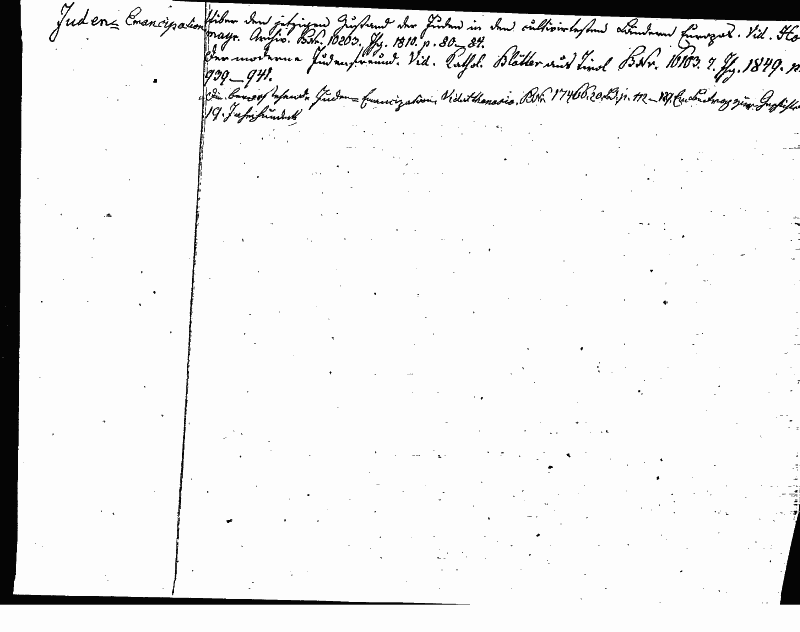 Juden= Emancipation
Ueber den jetzigen Zustand der Juden in den cultivirtesten Ländern Europas. Vid. Ho
mayr. Archiv. BNr. 16203. Jhg. 1810. p. 80–84.
Der moderne Judenfreund. Vid. Kathol. Blätter aus Tirol BNr. 7. Jhg. 1849. p.
939–941.
Die bevorstehende Juden=Emancipation. Vid. Athanasia. BNr. p. Ein Beitrag zur Geschichte
19. Jahrhundert